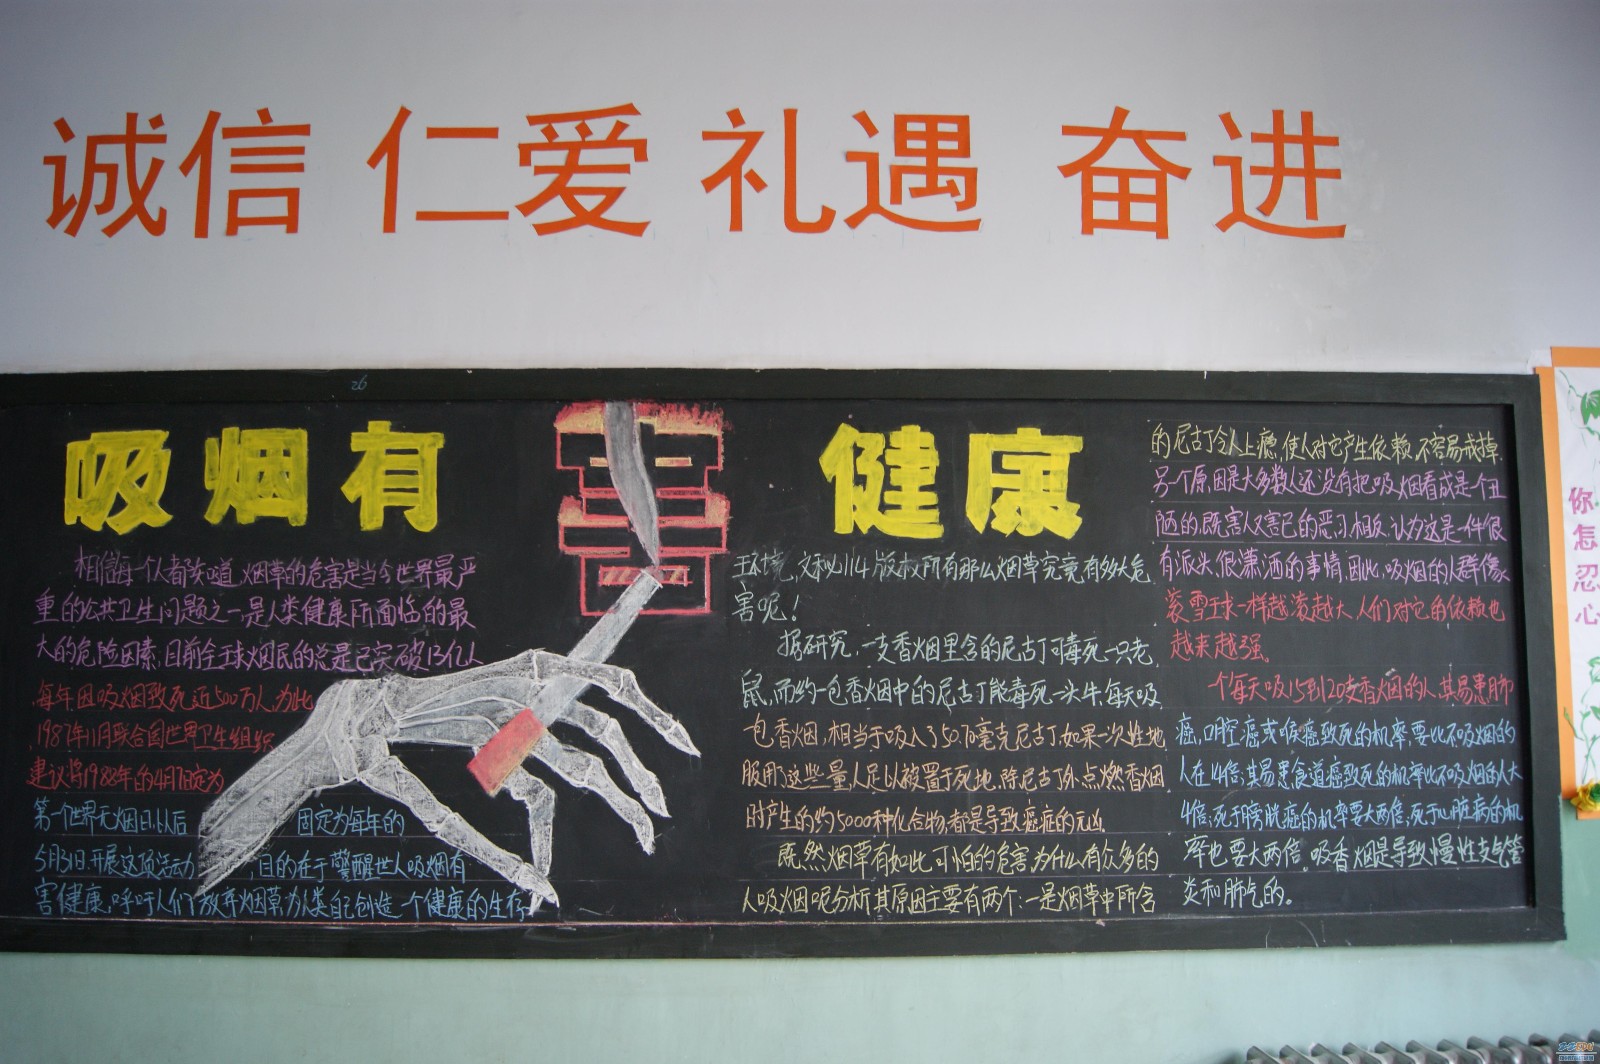 诚信 仁爱 礼遇 奋进
26
吸烟有害健康
相信每个人都知道,烟草的危害是当今世界最严
重的公共卫生问题之一是人类健康所面临的最
大的危险因素,目前全球烟民的总是已突破13亿人
每年因吸烟致死近500万人,为此
1987年11月联合国世界卫生组织
建议将1988年的4月7日定为
第一个世界无烟日,以后 固定为每年的
5月31日开展这项活动,目的在于警醒世人吸烟有
害健康,呼吁人们放弃烟草,为人类自己创造一个健康的生存
环境,文秘114版权所有那么烟草究竟有多大危
害呢!
据研究,一支香烟里含的尼古丁可毒死一只老
鼠,而约一包香烟中的尼古丁能毒死一头牛,每天吸
包香烟,相当于吸入了50.70毫克尼古丁,如果一次性地
服用了这些量人足以被置于死地,除尼古丁外,点燃香烟
时产生的约5000种化合物,都是导致癌症的元凶.
既然烟草有如此可怕的危害为什么有众多的
人吸烟呢分析其原因主要有两个:一是烟草中所含
的尼古丁令人上瘾,使人对它产生依赖,不容易戒掉
另个原因是大多数人还没有把吸烟看成是个丑
陋的,既害人又害己的恶习,相反,认为这是一件很
有派头,很潇洒的事情,因此,吸烟的人群像
滚雪球一样越滚越大,人们对它的依赖也
越来越强。
一个每天吸15到20支香烟的人,其易患肺
癌,口腔癌或喉癌致死的机率,要比不吸烟的
人在14倍;其易患食道癌致死的机率比不吸烟的人大
4倍;死于膀胱癌的机率要大两倍;死于心脏病的机
率也要大两倍.吸香烟是导致慢性支气管
炎和肺气的。
你怎忍心